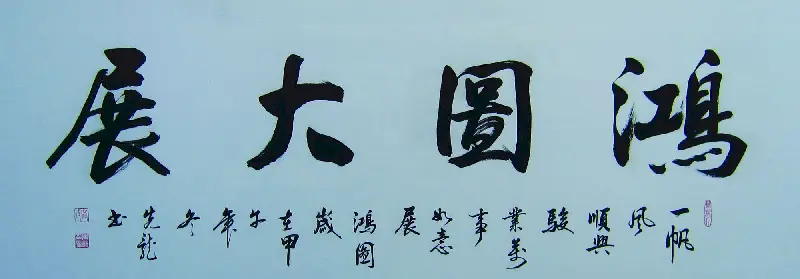 鴻圖大展
一帆風順興駿業萬事如意展鴻圖歲在甲午年冬先龍书